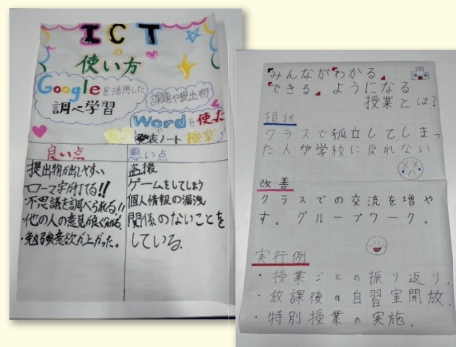 ICT
の
使い方
Googleを活用した
調べ学習
課題や提出物
Wordを使った
発表ノート 授業
良い点
提出物が出しやすい
ローマ字が打てる!!
・不思議を調べられる!!
・他の人の意見が良くわかる。
・勉強意欲が上がった。
悪い点
盗撮
ゲームをしてしまう
個人情報の漏洩
関係のないことを
している。
「みんながわかる」
「できる」ようになる
授業とは?
現状
クラスで孤立してしまっ
た人が学校に戻れない
改善
クラスでの交流を増や
す。グループワーク。
実行例
・授業ごとの振り返り.
・放課後の自習室開放.
・特別授業の実施.